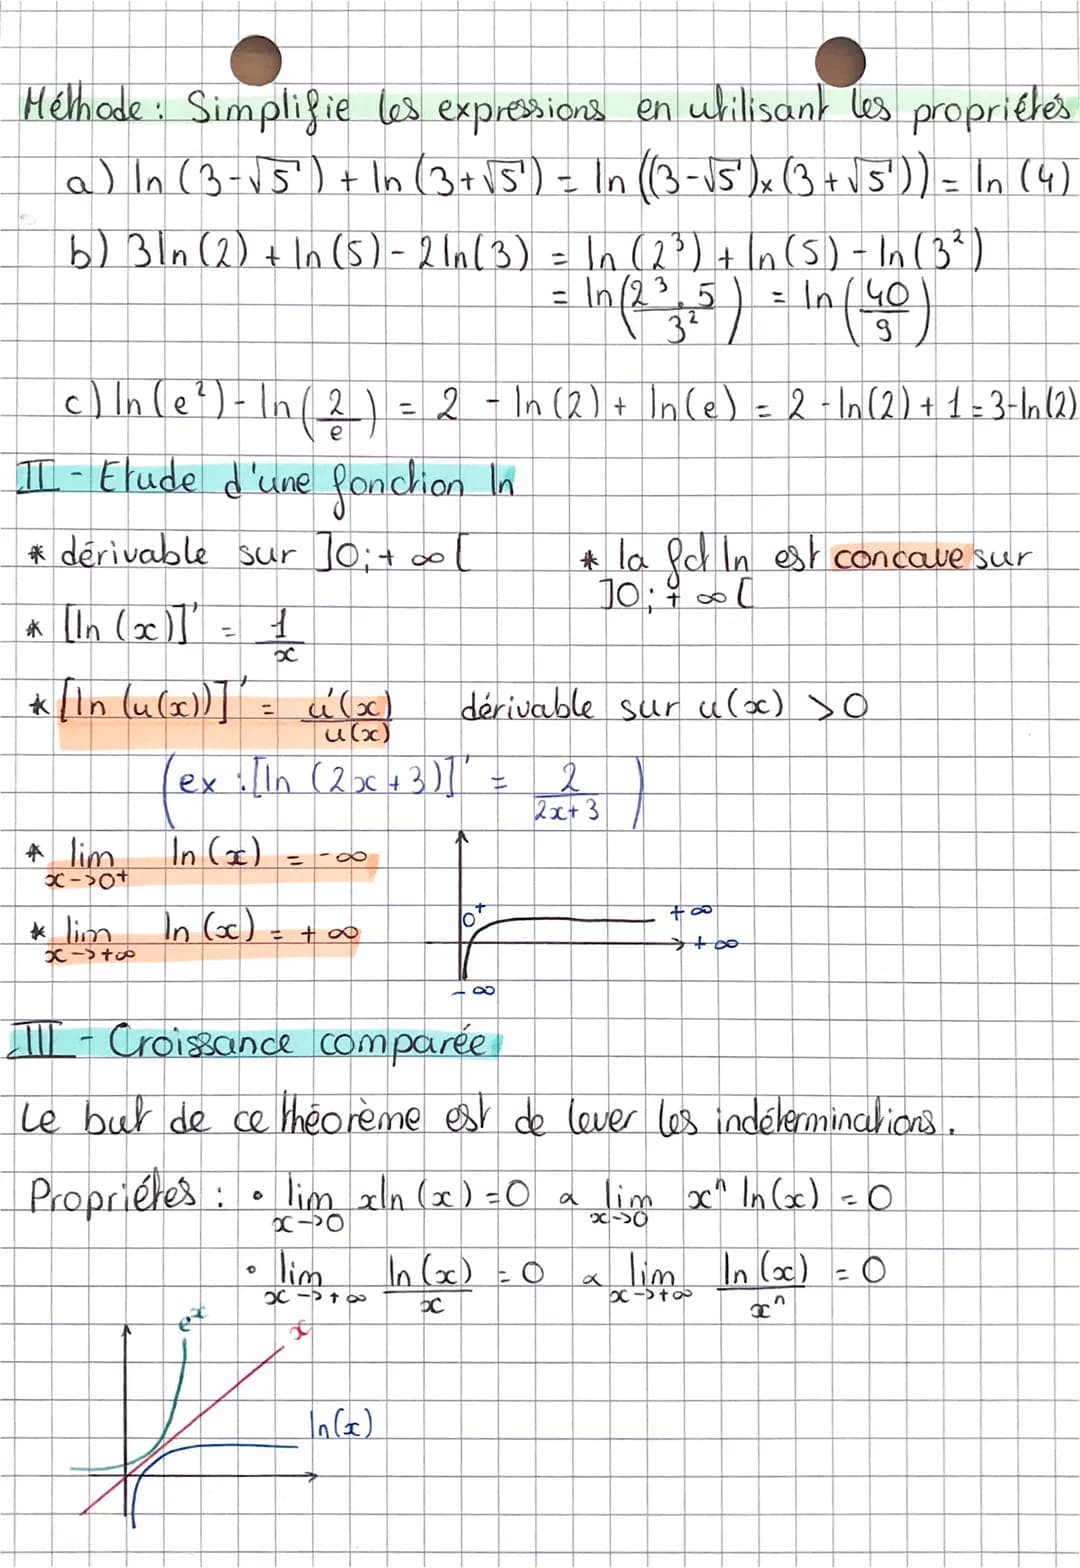 Méthode : Simplifie les expressions en utilisant les propriétés
a) ln (3-√5) + ln (3+√5) = ln ((3-√5)x(3+√5)) = ln (4)
b) 3ln(2) + ln(5) - 2ln(3) = ln (2³) + ln(5) - ln(3²)
= ln(2³.5/3²) = ln(40/9)
c) ln(e²) - ln(2/e) = 2 - ln(2) + ln(e) = 2 - ln(2) + 1 = 3-ln(2)
II - Etude d'une fonction ln
* dérivable sur ]0;+∞[
* la fct ln est concave sur
]0;+∞[
* [ln (x)]' = 1/x
* [ln (u(x))]' = u'(x)/u(x) dérivable sur u(x) >0
(ex : [ln (2x+3)]' = 2/(2x+3))
* lim x->0+ ln (x) = -∞
* lim x->+∞ ln (x) = +∞
0+
+∞
+∞
-∞
III - Croissance comparée
Le but de ce théorème est de lever les indéterminations.
Propriétes : • lim x->0 xln (x) = 0 a lim x->0 xⁿ ln(x) = 0
• lim x->+∞ ln(x)/x = 0 a lim x->+∞ ln(x)/xⁿ = 0
eˣ
x
ln(x)